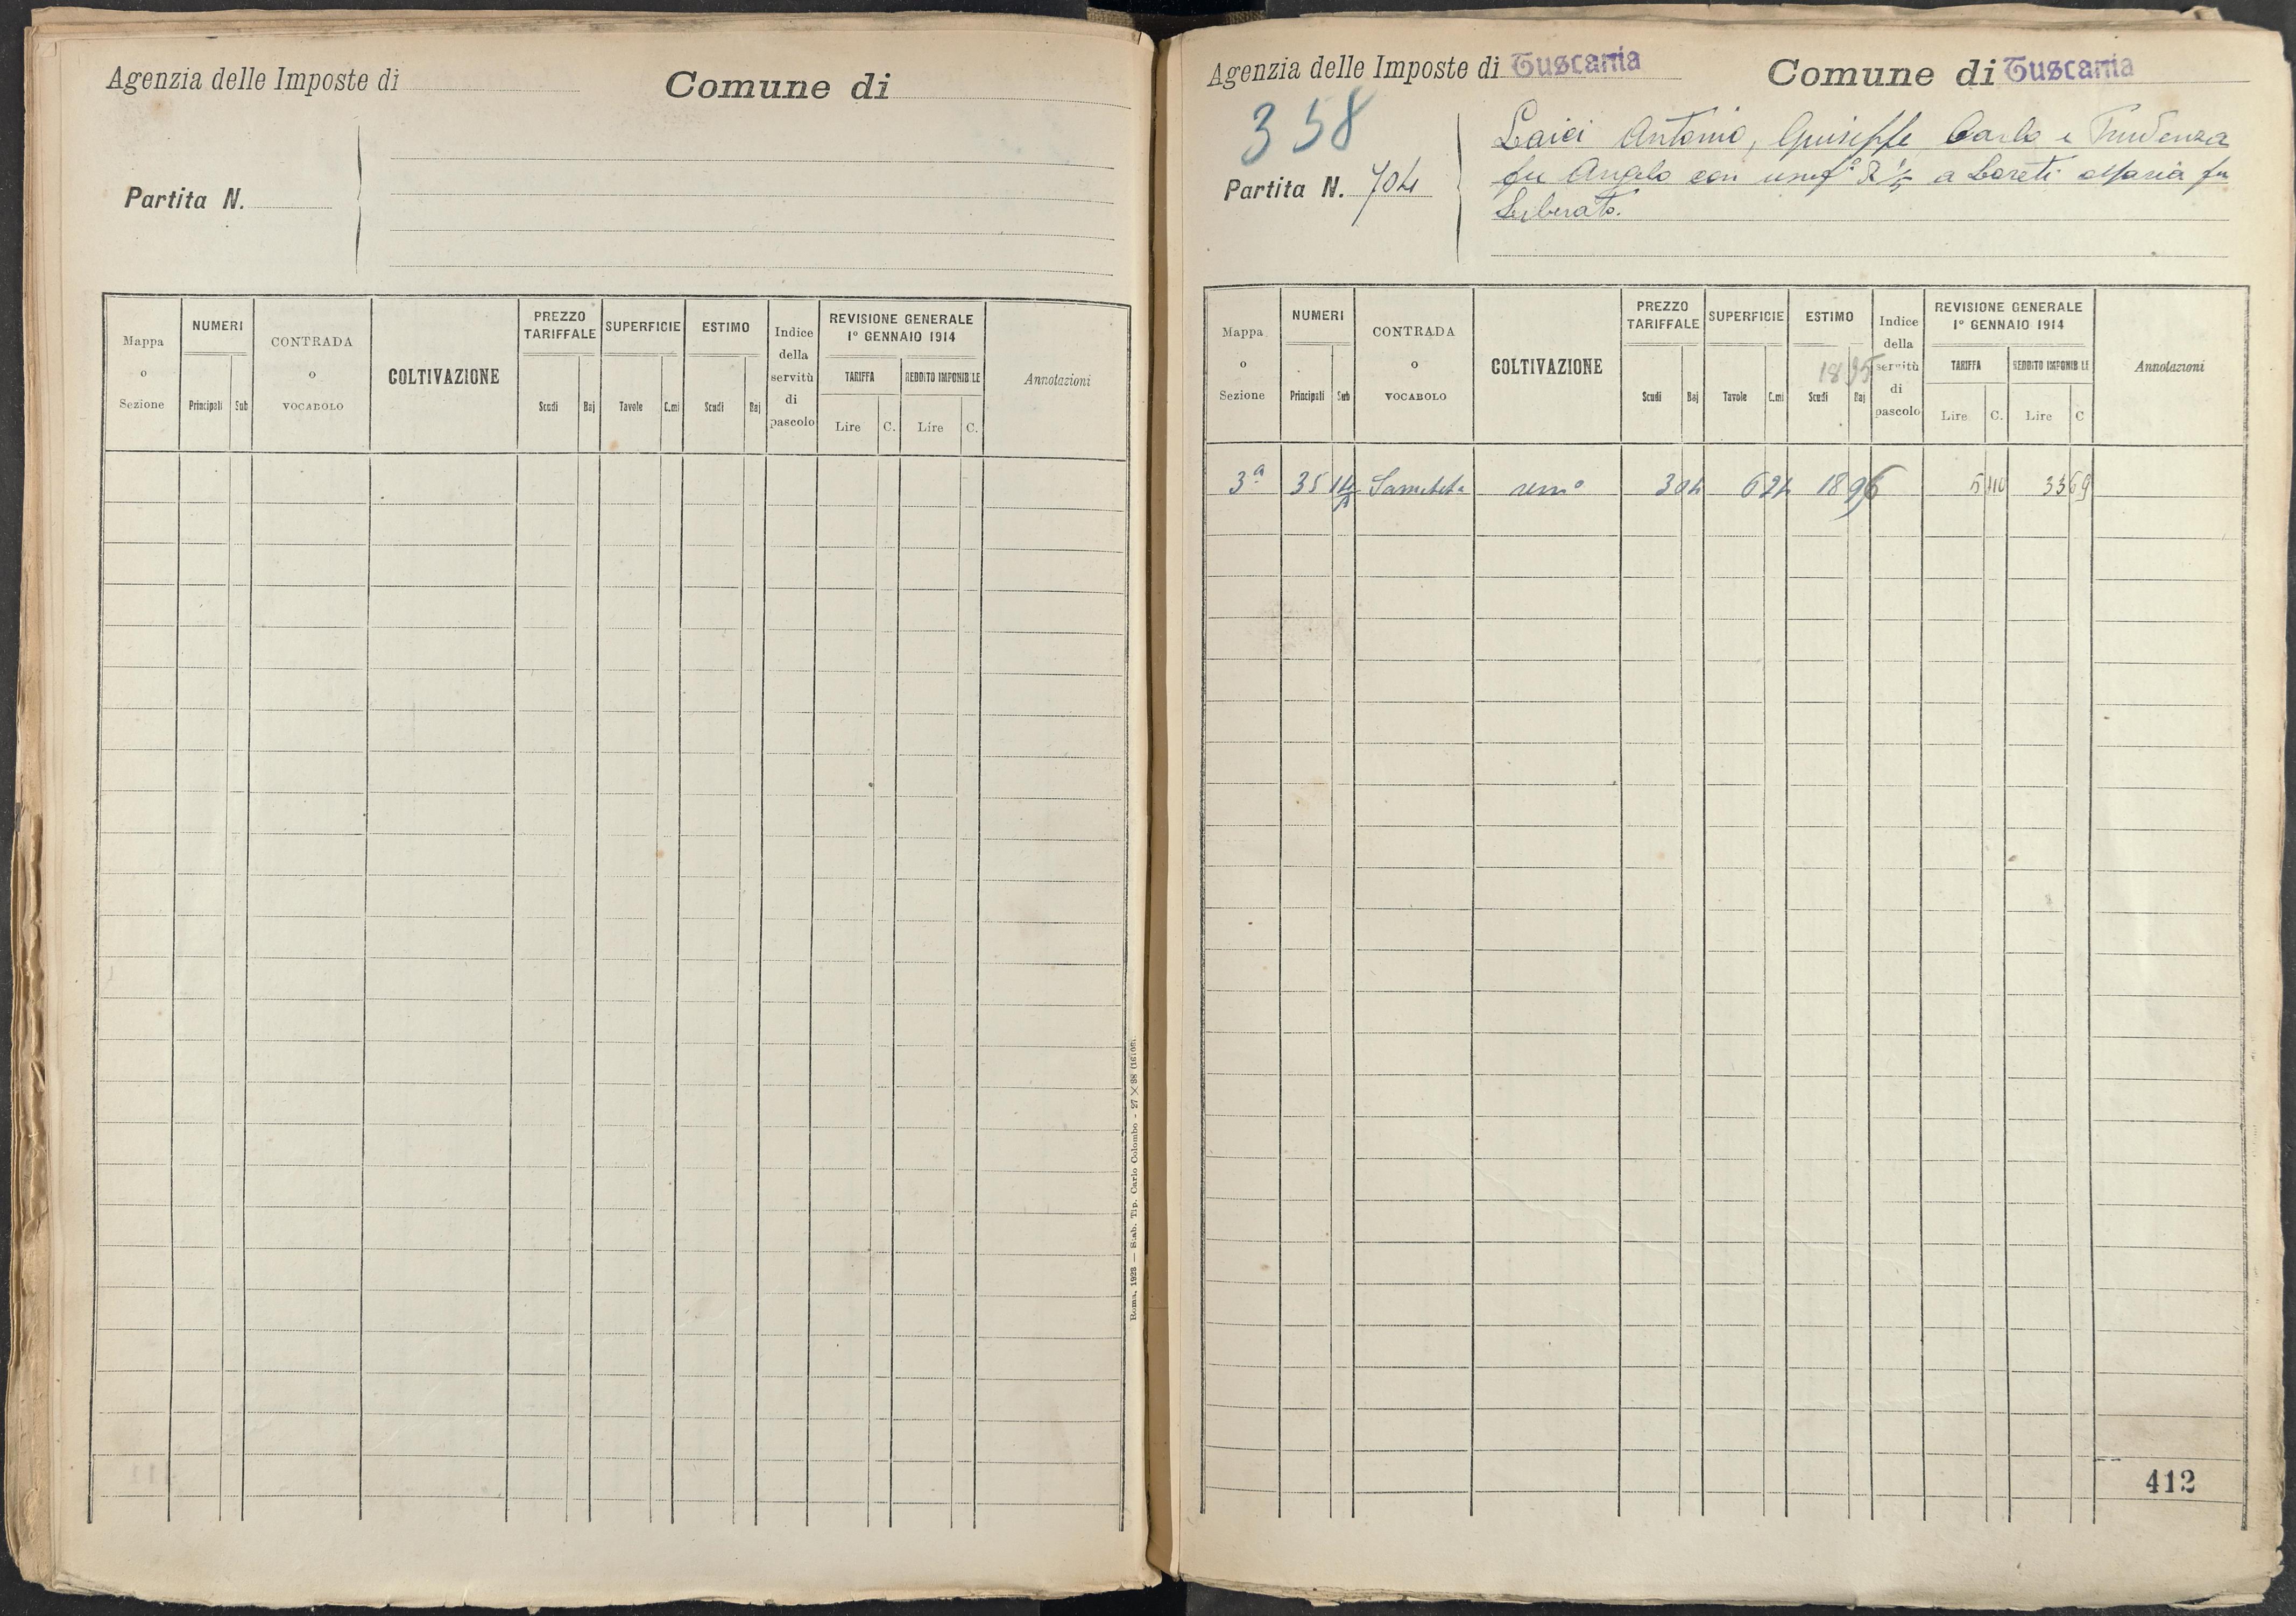 Agenzia delle Imposte di
Comune di
Partita N.
Mappa o Sezione
NUMERI
Principali Sub
CONTRADA o VOCABOLO
COLTIVAZIONE
PREZZO TARIFFALE
Scudi Baj
SUPERFICIE
Tavole C.mi
ESTIMO
Scudi Baj
Indice della servitù di pascolo
REVISIONE GENERALE
1° GENNAIO 1914
TARIFFA
Lire C.
REDDITO IMPONIBILE
Lire C.
Annotazioni
Roma, 1923 — Stab. Tip. Carlo Colombo - 27 X 38
Agenzia delle Imposte di Tuscania
Comune di Tuscania
358
Partita N. 704
Laici Antonio, Giuseppe Carlo e Prudenza
fu Angelo con usuf° di 1/5 a Loreti Maria fu
Liberato.
Mappa o Sezione
NUMERI
Principali Sub
CONTRADA o VOCABOLO
COLTIVAZIONE
PREZZO TARIFFALE
Scudi Baj
SUPERFICIE
Tavole C.mi
ESTIMO
1895
Scudi Baj
Indice della servitù di pascolo
REVISIONE GENERALE
1° GENNAIO 1914
TARIFFA
Lire C.
REDDITO IMPONIBILE
Lire C
Annotazioni
3ª 35 sem° 3 04 6 24 18 96 5 40 33 69
412